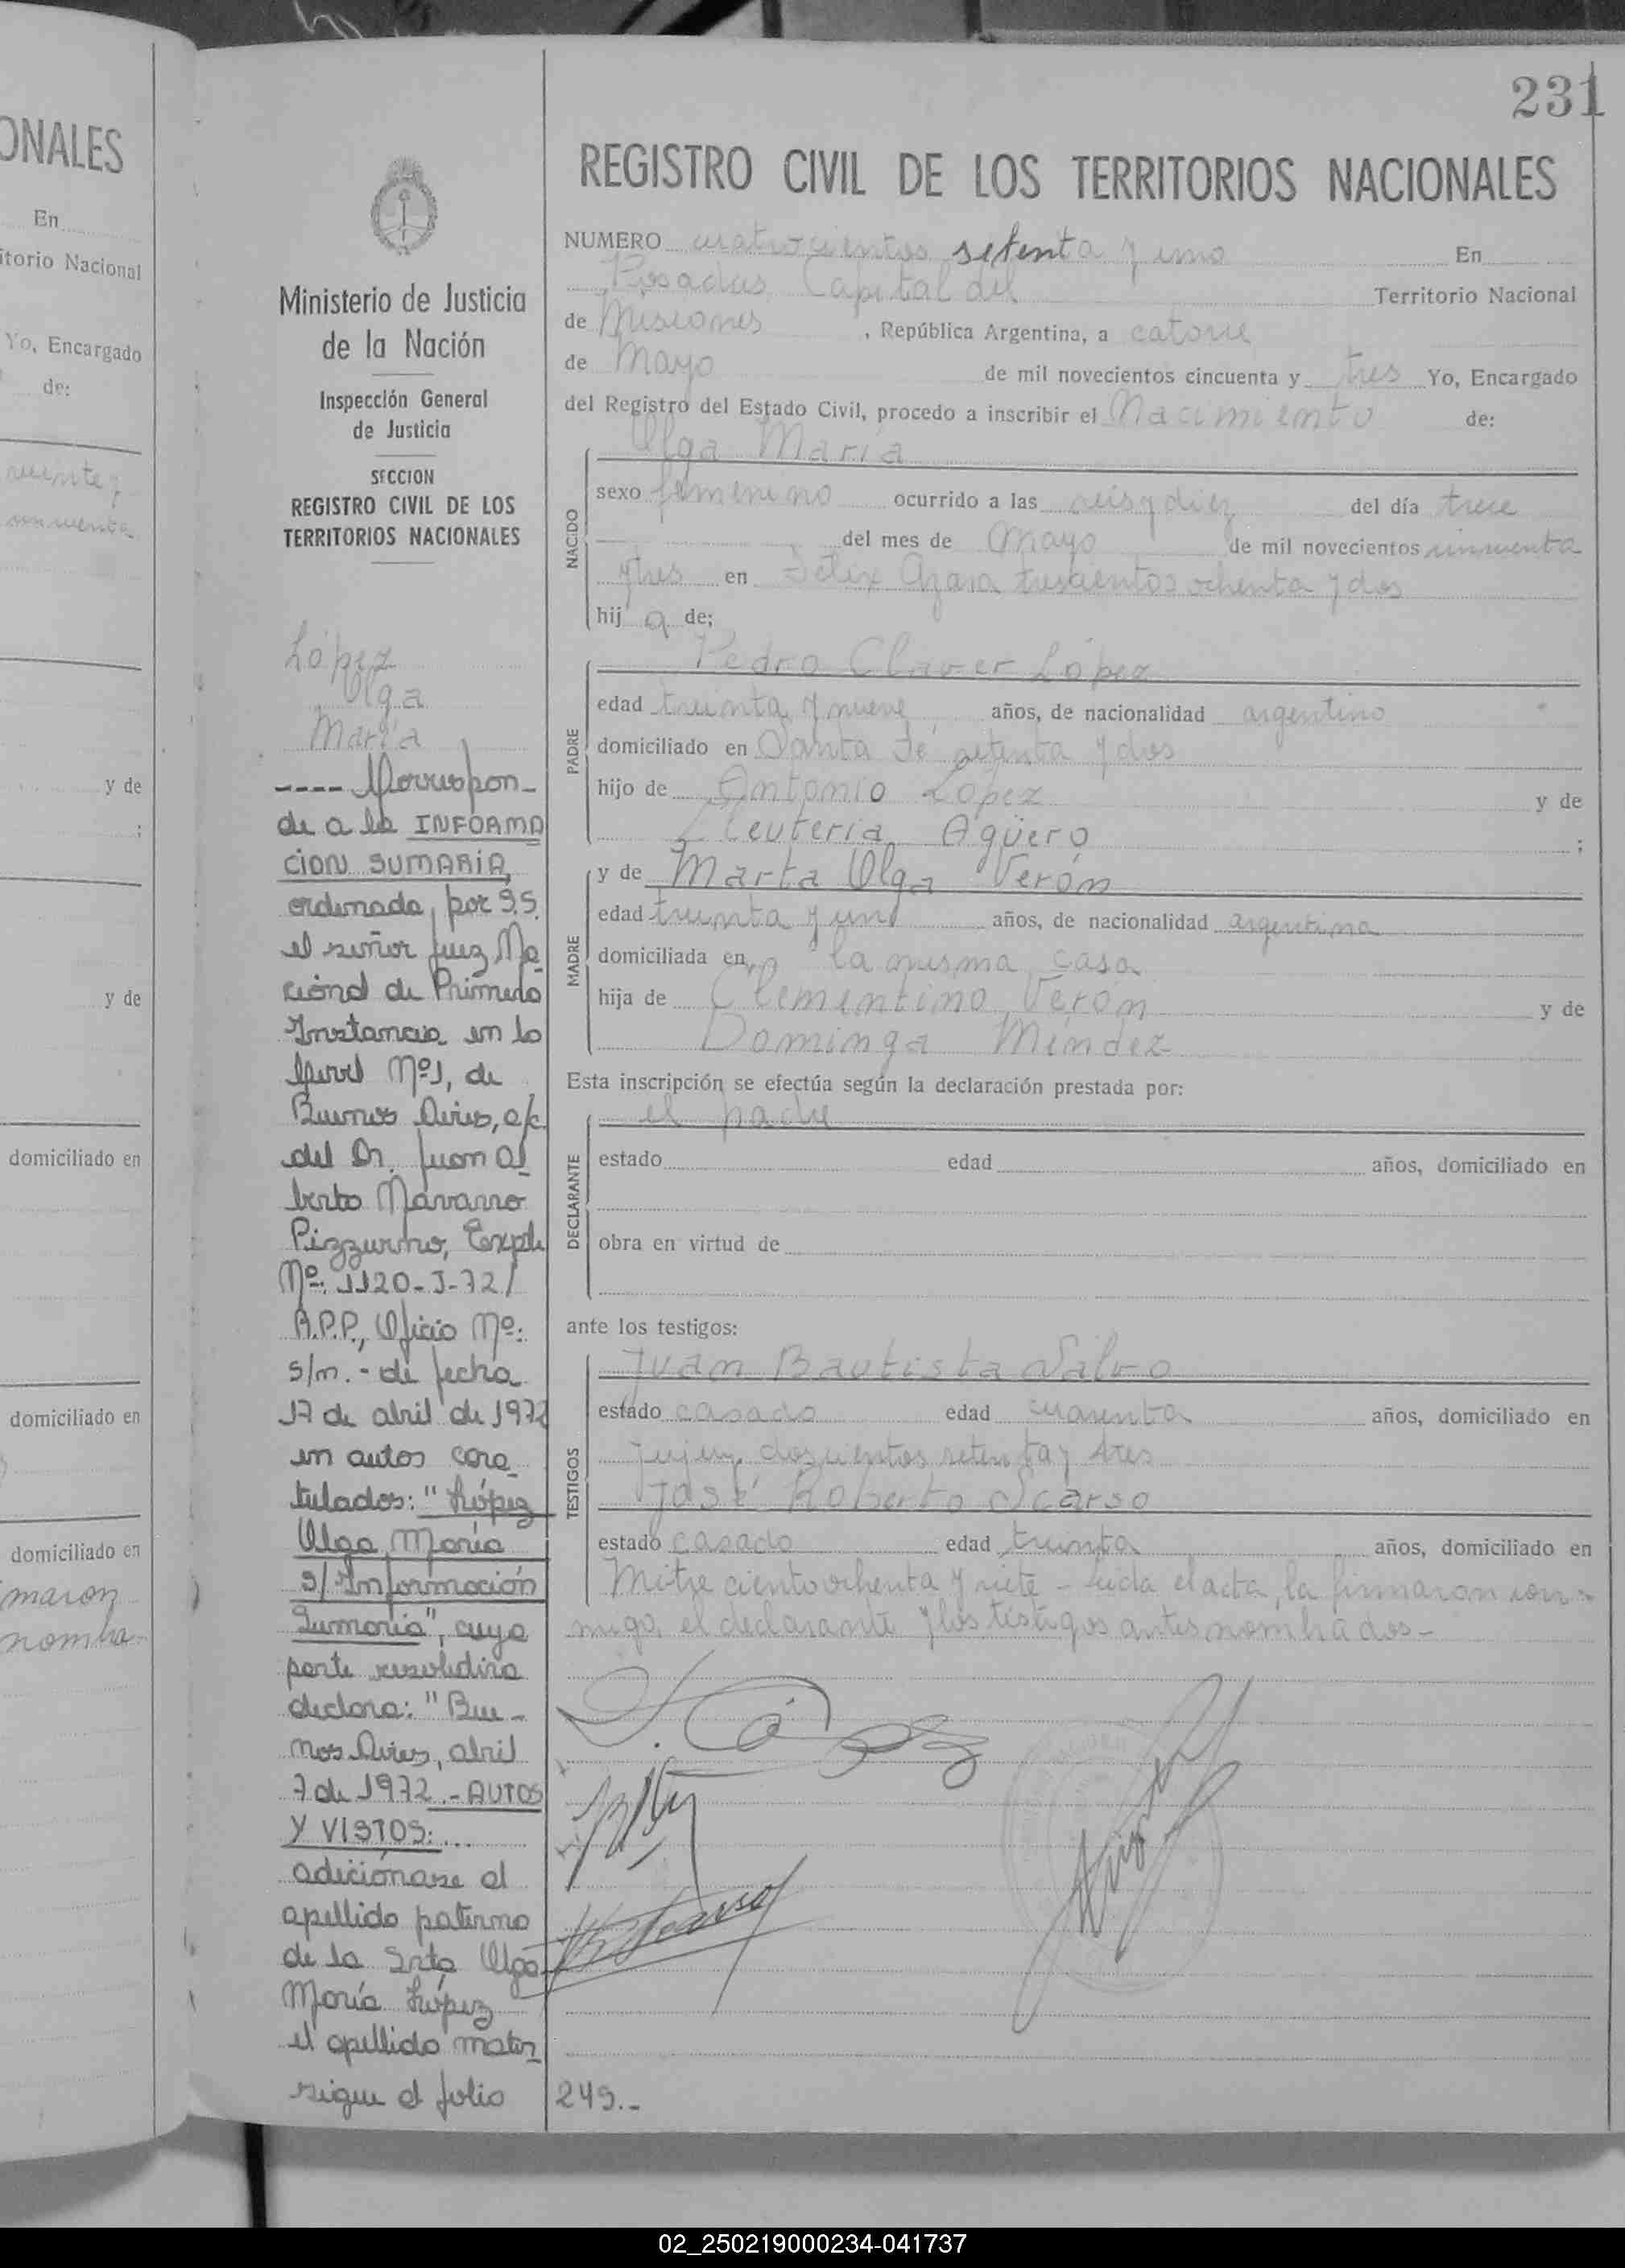 ONALES
En
itorio Nacional
Yo, Encargado
de:
y de
;
y de
domiciliado en
domiciliado en
domiciliado en
maron
nombra-
231
Ministerio de Justicia
de la Nación
Inspección General
de Justicia
SECCION
REGISTRO CIVIL DE LOS
TERRITORIOS NACIONALES
López
Olga
María
---- Correspon-
de a la INFORMA
CION SUMARIA,
ordenada por S.S.
el señor Juez Na
cional de Primera
Instancia en lo
Civil Nº1, de
Buenos Aires, a/c.
del Dr. Juan Al
berto Navarro
Pizzurno, Expte
Nº: 1120-J-72/
A.P.P., Oficio Nº:
s/n.- de fecha
17 de abril de 1972
en autos cara
tulados: "López
Olga María
s/ Información
Sumaria", cuya
parte resolutiva
declara: "Bue-
nos Aires, abril
7 de 1972.- AUTOS
Y VISTOS:...
adiciónase al
apellido paterno
de la Srta Olga
María López
el apellido mater
sigue al folio 249.-
REGISTRO CIVIL DE LOS TERRITORIOS NACIONALES
NUMERO cuatrocientos setenta y uno En
Posadas Capital del Territorio Nacional
de Misiones, República Argentina, a catorce
de Mayo de mil novecientos cincuenta y tres Yo, Encargado
del Registro del Estado Civil, procedo a inscribir el Nacimiento de:
Olga María
NACIDO
sexo femenino ocurrido a las seis y diez del día trece
del mes de Mayo de mil novecientos cincuenta
y tres en Félix Azara trescientos ochenta y dos
hij a de;
Pedro Claver López
PADRE
edad treinta y nueve años, de nacionalidad argentino
domiciliado en Santa Fé setenta y dos
hijo de Antonio López y de
Eleuteria Agüero ;
y de Marta Olga Verón
MADRE
edad treinta y un años, de nacionalidad argentina
domiciliada en la misma casa
hija de Clementino Verón y de
Dominga Méndez
Esta inscripción se efectúa según la declaración prestada por:
el padre
DECLARANTE
estado edad años, domiciliado en
obra en virtud de
ante los testigos:
Juan Bautista Salvo
TESTIGOS
estado casado edad cuarenta años, domiciliado en
Jujuy doscientos setenta y tres
José Roberto Scarso
estado casado edad treinta años, domiciliado en
Mitre ciento ochenta y siete - Leída el acta, la firmaron con-
migo, el declarante y los testigos antes nombrados-
02_250219000234-041737